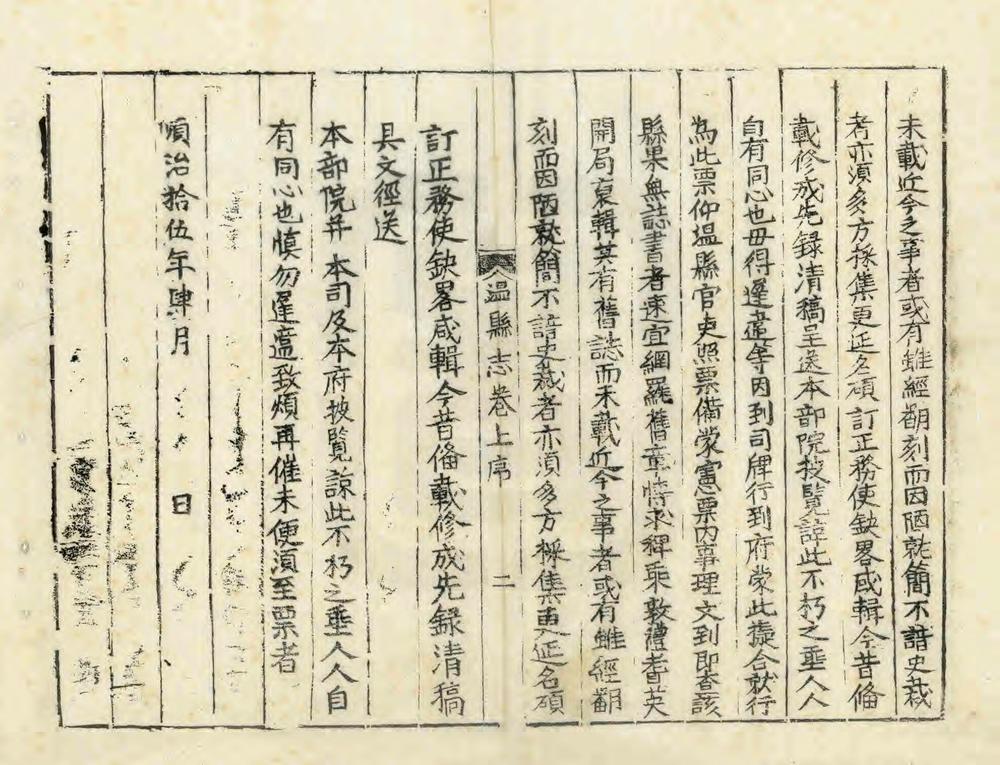 未載近今之事者或有雖經翻刻而因陋就簡不諳史裁
者亦須多方採集更延名碩訂正務使缺畧咸輯今昔俻
載修成先録清稿呈送本部院披覧諒此不朽之垂人人
自有同心也毋得遲違等因到司牌行到府蒙此擬合就行
為此票仰温縣官吏照票備蒙憲票内事理文到即查該
縣果無誌書者速宜網羅舊章特求稗乘敦禮耆英
開局裒輯其有舊誌而未載近今之事者或有雖經翻
刻而因陋就簡不諳史裁者亦須多方採集更延名碩
温縣志卷上序 二
訂正務使缺畧咸輯今昔俻載修成先録清稿
具文徑送
本部院并本司及本府披覧諒此不朽之垂人人自
有同心也慎勿遲違致煩再催未便須至票者
順治拾伍年肆月 日